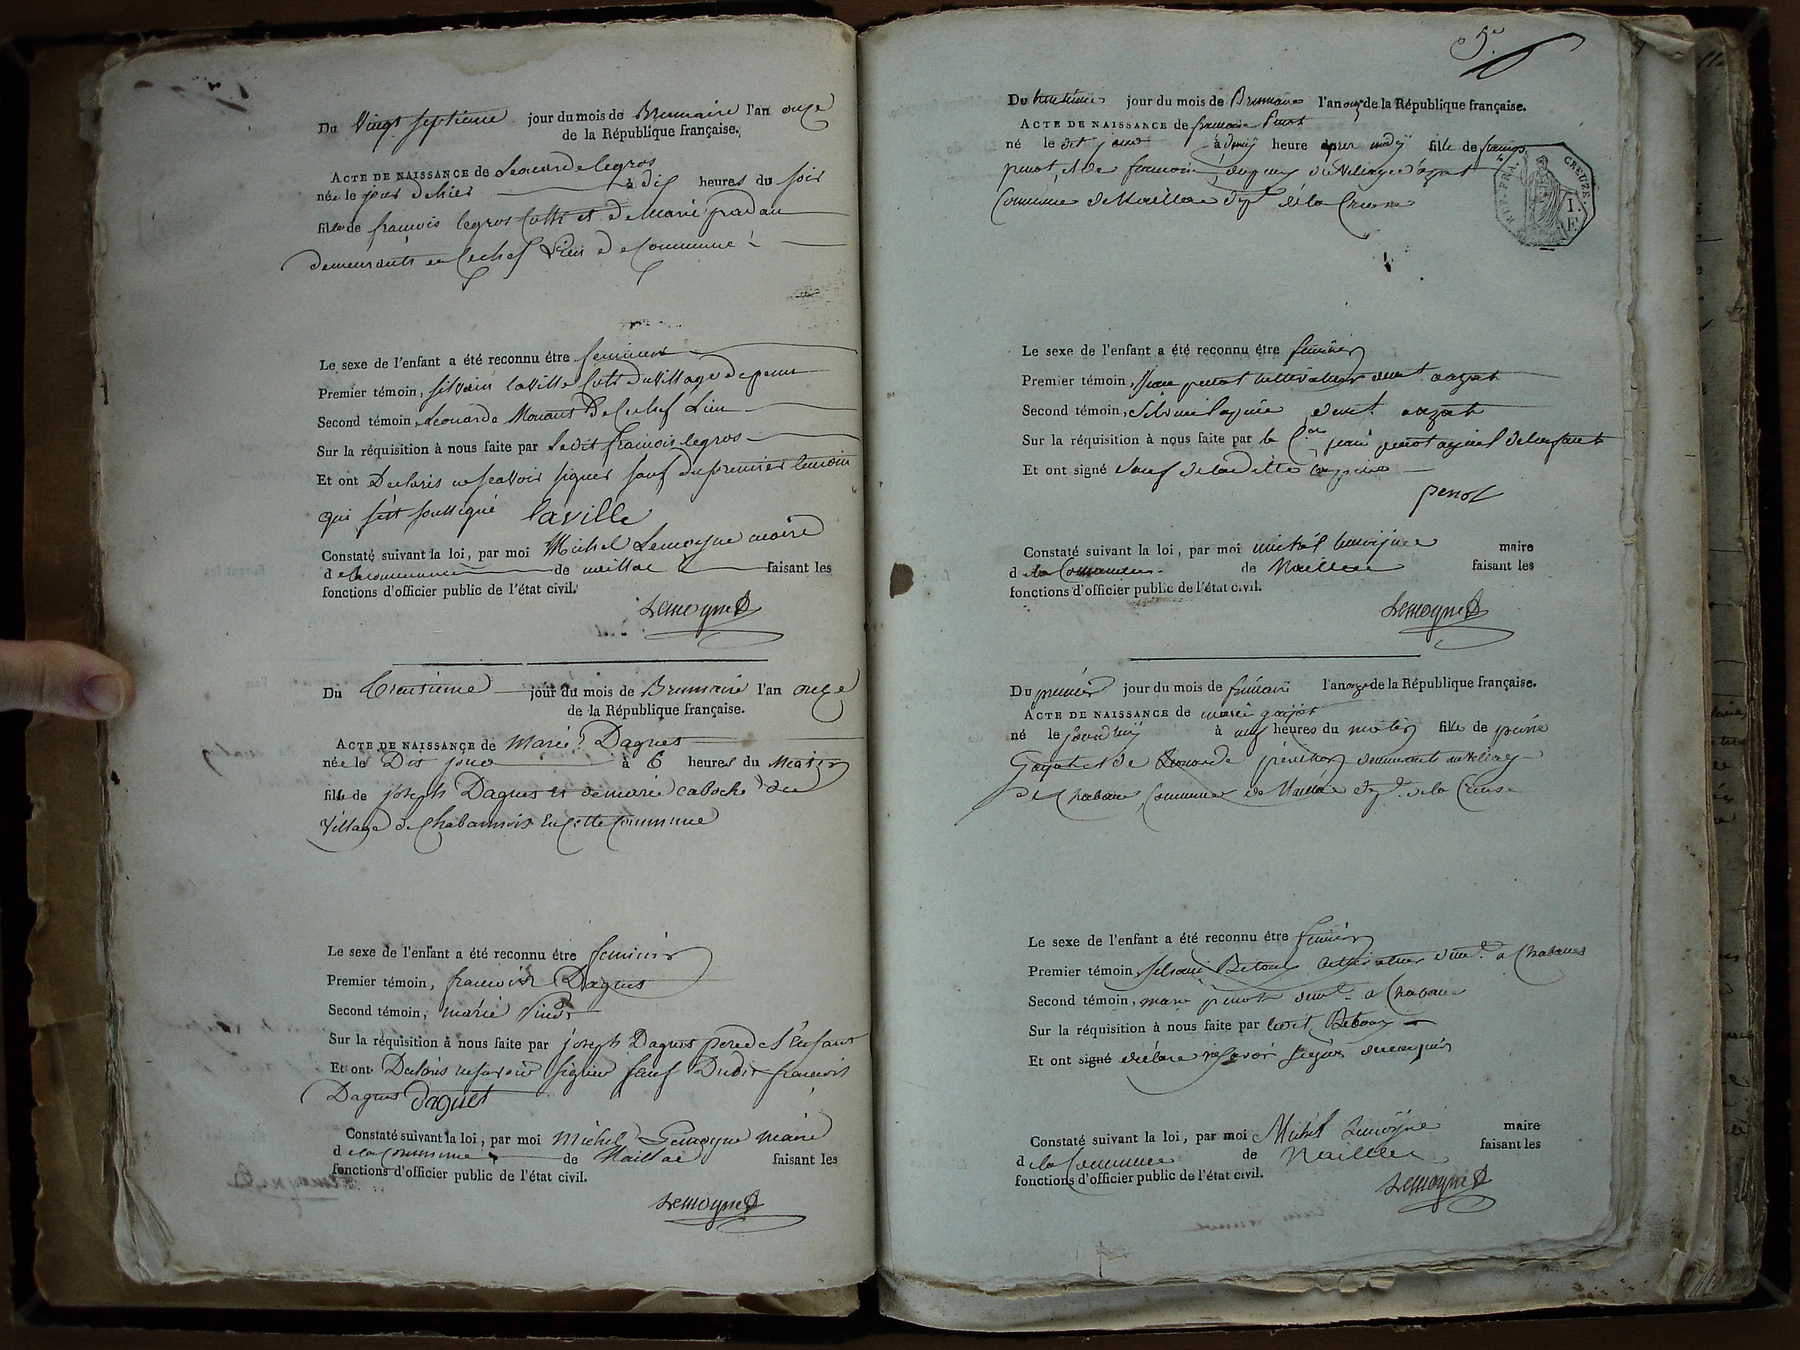 Du Vingt septieme jour du mois de Brumaire l'an onze
de la République française.
ACTE DE NAISSANCE de Leonarde legros
née le jour d'hier à dix heures du soir
fille de françois legros Cult et de Marie pradau
demeurants en Ce chef Lieu de Commune
Le sexe de l'enfant a été reconnu être feminin
Premier témoin, silvain laville Cult du village de
Second témoin, Leonarde De Ce chef Lieu
Sur la réquisition à nous faite par Ledit françois legros
Et ont Declarés ne scavoir signer sauf du premier temoin
qui s'est soussigné laville
Constaté suivant la loi, par moi Michel Lemoyne maire
de la commune de maillac faisant les
fonctions d'officier public de l'état civil.
Lemoyne
Du trentieme jour du mois de Brumaire l'an onze
de la République française.
ACTE DE NAISSANCE de Marie Dagues
née le Dit jour à 6 heures du Matin
fille de joseph Dagues et de marie caboche du
Village de Chabannois En Cette Commune
Le sexe de l'enfant a été reconnu être feminin
Premier témoin, francois Dagues
Second témoin, marie
Sur la réquisition à nous faite par joseph Dagues pere de L'Enfant
Et ont Declarés ne savoir signer sauf Dudit francois
Dagues daguet
Constaté suivant la loi, par moi Michel Lemoyne Maire
de la Commune de Maillac faisant les
fonctions d'officier public de l'état civil.
Lemoyne
5.
Du trentieme jour du mois de Brumaire l'an onze de la République française.
ACTE DE NAISSANCE de francoise Penot
né le dit jour à heure apres midy fille de francois
penot, et de francoise du Village d'azat
Commune de Maillac dept de la Creuse
RÉP. FRA. CREUZE
Le sexe de l'enfant a été reconnu être feminin
Premier témoin, penot cultivateur demt a azat
Second témoin, Silvine demt a azat
Sur la réquisition à nous faite par le Cen jean penot de lenfant
Et ont signé sauf de la ditte
penot
Constaté suivant la loi, par moi michel lemoyne maire
de la Commune de Maillac faisant les
fonctions d'officier public de l'état civil.
Lemoyne
Du premier jour du mois de frimaire l'an onze de la République française.
ACTE DE NAISSANCE de marie gayot
né le à heures du matin fille de pierre
Gayot et de Leonarde demeurants au Village
de Chabanes Commune de Maillac dept. de la Creuse
Le sexe de l'enfant a été reconnu être feminin
Premier témoin, silvain Betoux cultivateur demt. a Chabanes
Second témoin, marie penot demt. a Chabane
Sur la réquisition à nous faite par ledit Betoux
Et ont signé declare ne savoir signer
Constaté suivant la loi, par moi Michel Lemoyne maire
de la Commune de Maillac faisant les
fonctions d'officier public de l'état civil.
Lemoyne